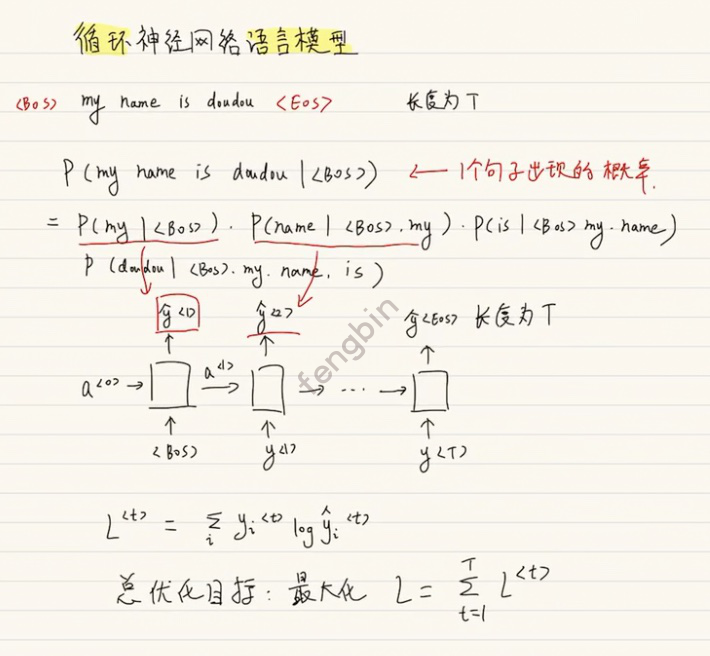 循环神经网络语言模型
<BOS> my name is doudou <EOS> 长度为 T
P(my name is doudou | <BOS>) ← 1个句子出现的概率.
= P(my | <BOS>) · P(name | <BOS>. my) · P(is | <BOS> my. name)
P (doudou | <BOS>. my. name. is)
ŷ<1> ŷ<2> ŷ<EOS> 长度为 T
a<0> → a<1> → → ··· →
<BOS> y<1> y<T>
L<t> = Σi yi<t> log ŷi<t>
总优化目标: 最大化 L = Σ t=1 T L<t>
fengbin